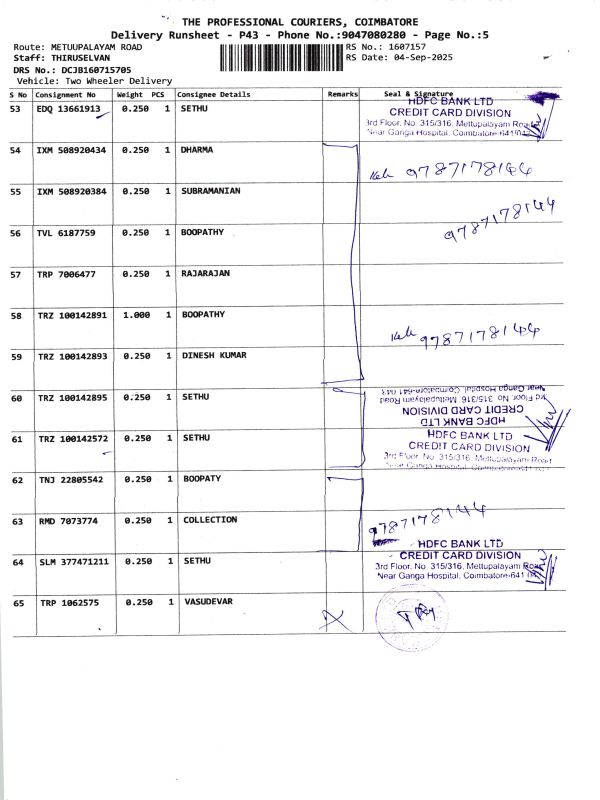 THE PROFESSIONAL COURIERS, COIMBATORE
Delivery Runsheet - P43 - Phone No.:9047080280 - Page No.:5
Route: METUUPALAYAM ROAD
RS No.: 1607157
Staff: THIRUSELVAN
RS Date: 04-Sep-2025
DRS No.: DCJB160715705
Vehicle: Two Wheeler Delivery
S No Consignment No Weight PCS Consignee Details Remarks Seal & Signature
53 EDQ 13661913 0.250 1 SETHU
HDFC BANK LTD
CREDIT CARD DIVISION
3rd Floor, No. 315/316, Mettupalayam Road
Near Ganga Hospital, Coimbatore-641 043
54 IXM 508920434 0.250 1 DHARMA
9787178144
55 IXM 508920384 0.250 1 SUBRAMANIAN
9787178144
56 TVL 6187759 0.250 1 BOOPATHY
57 TRP 7006477 0.250 1 RAJARAJAN
58 TRZ 100142891 1.000 1 BOOPATHY
9787178144
59 TRZ 100142893 0.250 1 DINESH KUMAR
60 TRZ 100142895 0.250 1 SETHU
HDFC BANK LTD
CREDIT CARD DIVISION
3rd Floor, No. 315/316, Mettupalayam Road
Near Ganga Hospital, Coimbatore-641 043
61 TRZ 100142572 0.250 1 SETHU
HDFC BANK LTD
CREDIT CARD DIVISION
3rd Floor, No. 315/316, Mettupalayam Road
Near Ganga Hospital, Coimbatore-641 043
62 TNJ 22805542 0.250 1 BOOPATY
63 RMD 7073774 0.250 1 COLLECTION
9787178144
64 SLM 377471211 0.250 1 SETHU
HDFC BANK LTD
CREDIT CARD DIVISION
3rd Floor, No. 315/316, Mettupalayam Road
Near Ganga Hospital, Coimbatore-641 043
65 TRP 1062575 0.250 1 VASUDEVAR